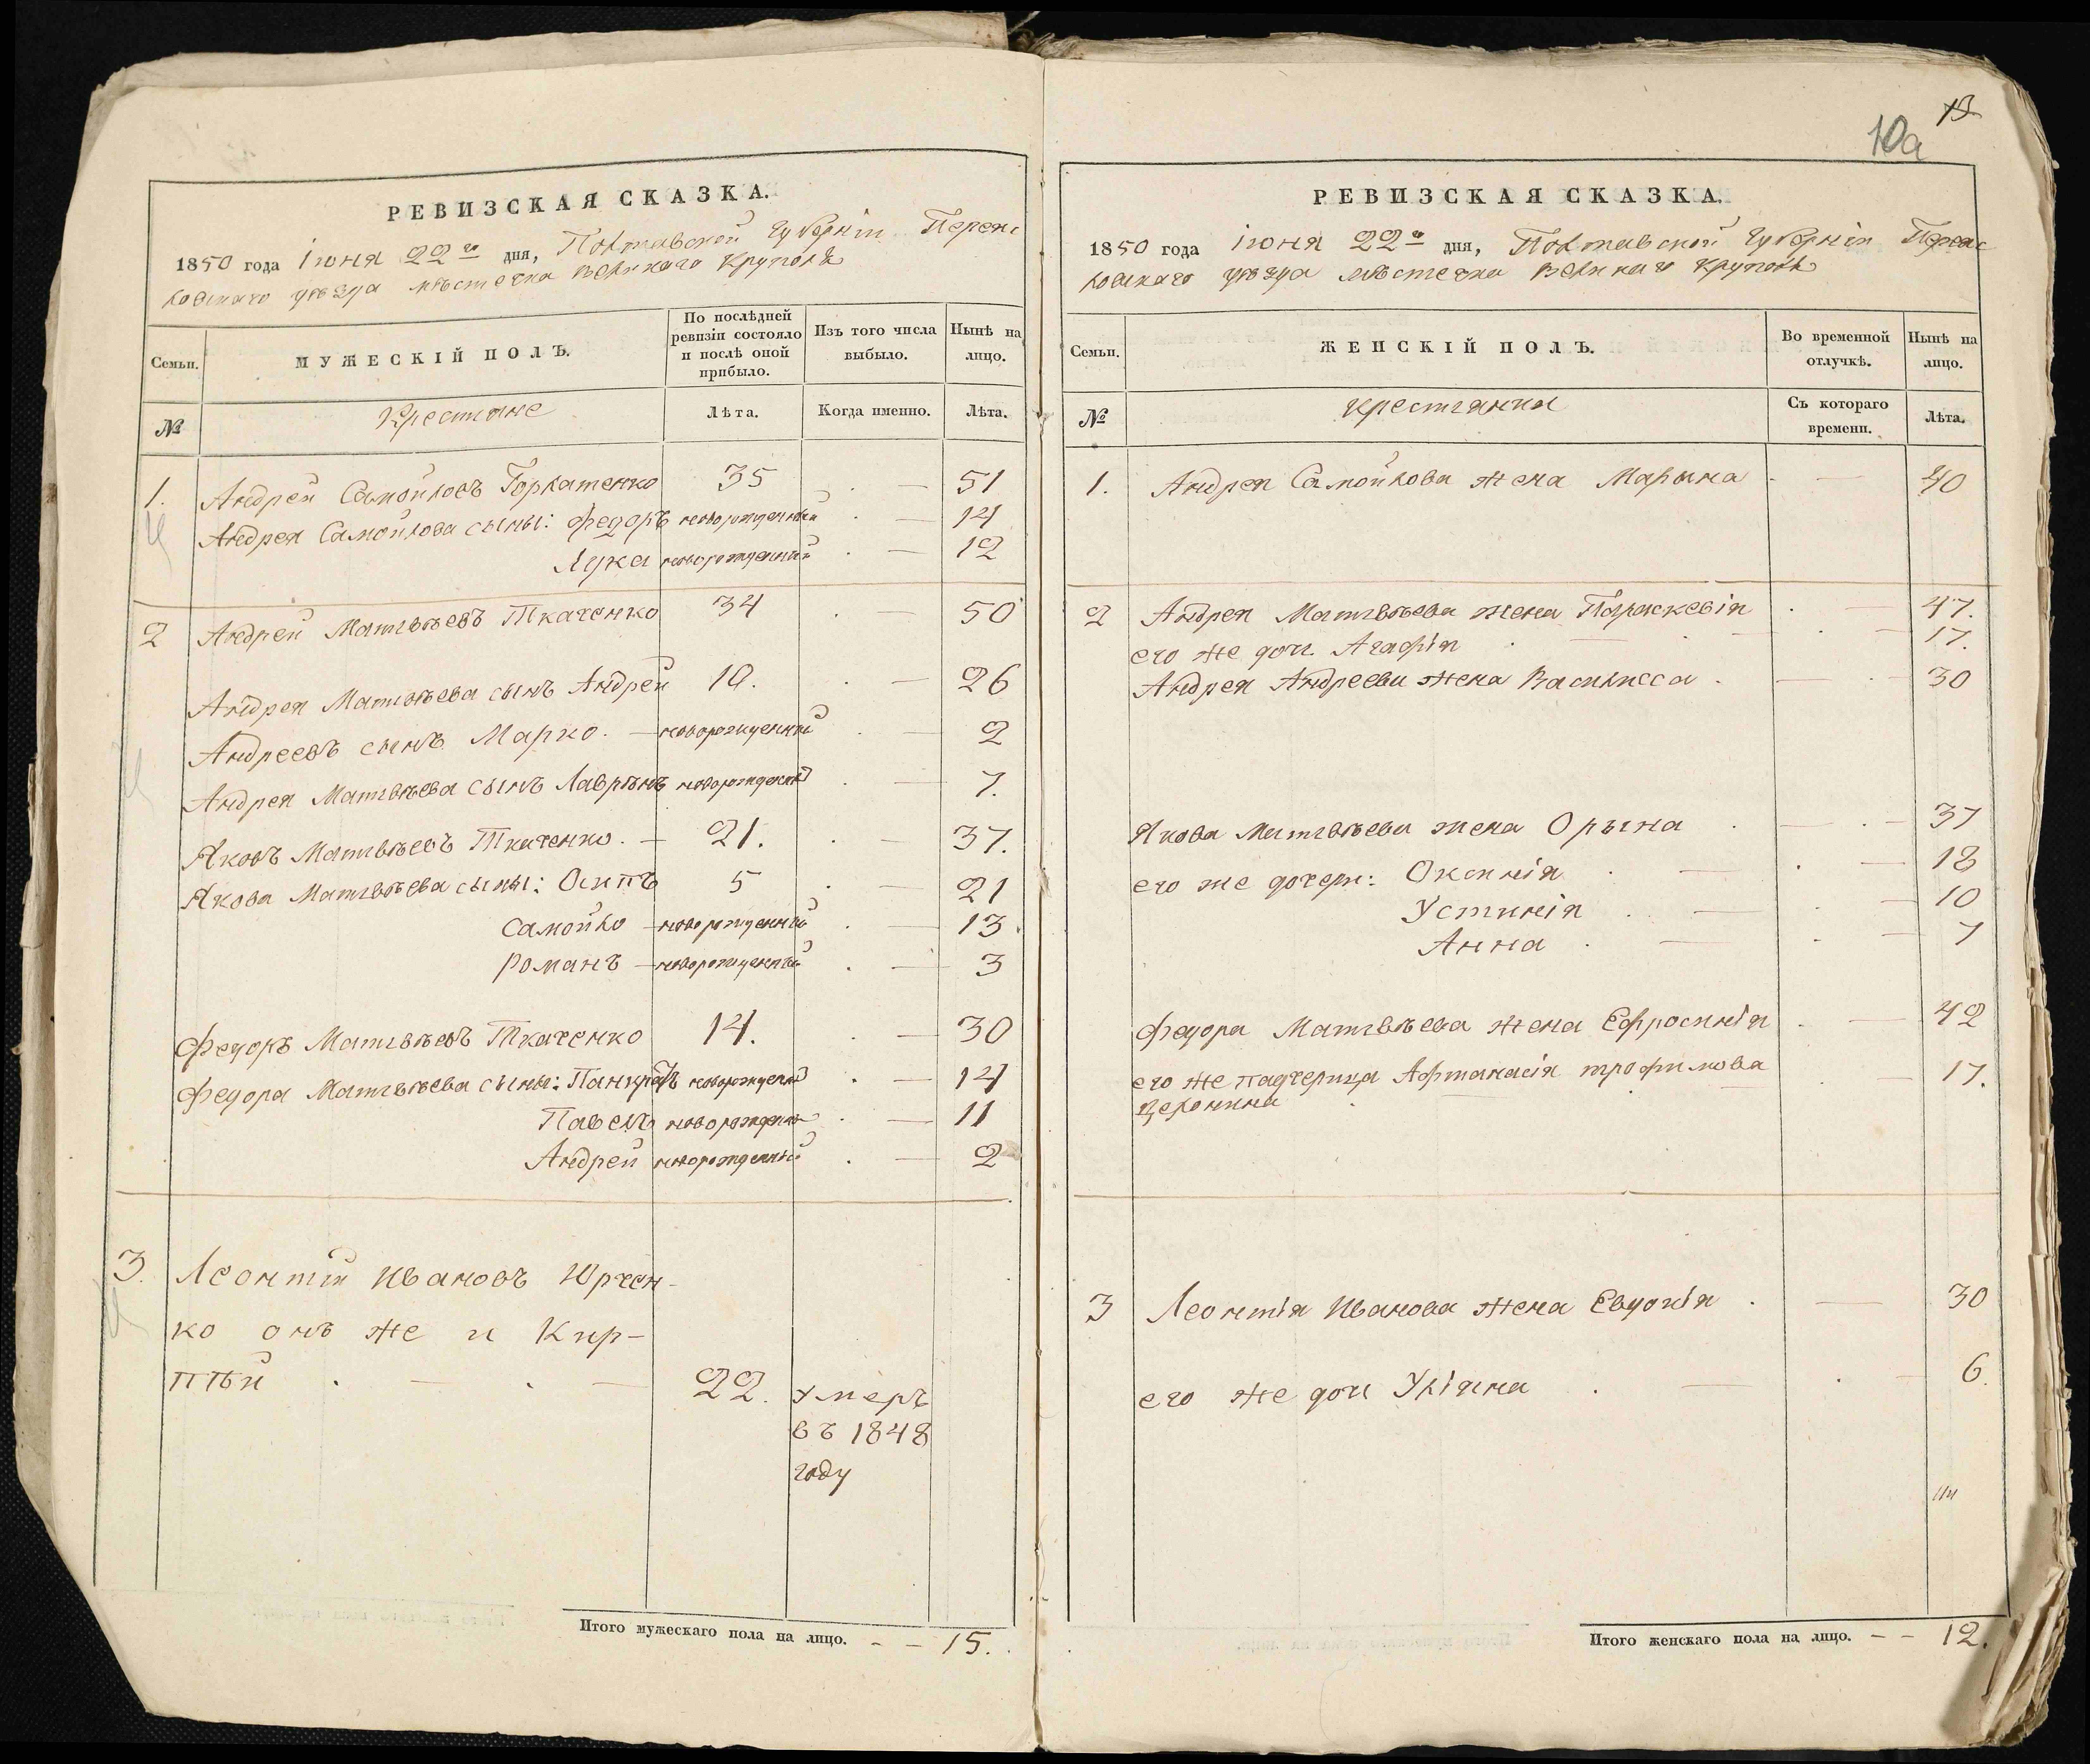 РЕВИЗСКАЯ СКАЗКА.
1850 года Іюня 22го дня, Полтавской Губерніи Переяс
ловскаго уѣзда мѣстечка Великаго Крупола
Семьи.
МУЖЕСКІЙ ПОЛЪ.
По послѣдней ревизіи состояло и послѣ оной прибыло.
Изъ того числа выбыло.
Нынѣ на лицо.
№
Крестяне
Лѣта.
Когда именно.
Лѣта.
1. Андрей Самойловъ Горкатенко 35 — 51
Андрея Самойлова сыны: Федоръ новорожденный — 14
Лука новорожденный — 12
2 Андрей Матвѣевъ Ткаченко 34 — 50
Андрея Матвѣева сынъ Андрей 10. — 26
Андреевъ сынъ Марко. — новорожденный — 2
Андрея Матвѣева сынъ Лаврынъ новорожденный — 7.
Яковъ Матвѣевъ Ткаченко. — 21. — 37.
Якова Матвѣева сыны: Осипъ 5 — 21
Самойло — новорожденный — 13
Романъ — новорожденный — 3
Федоръ Матвѣевъ Ткаченко 14. — 30
Федора Матвѣева сыны: Панкратъ новорожденный — 14
Павелъ новорожденный — 11
Андрей новорожденный — 2
3. Леонтій Ивановъ Юрчен-
ко онъ же и Кир-
пѣй . — . — 22. умеръ
въ 1848
году
Итого мужескаго пола на лицо. — — 15.
13
10а
РЕВИЗСКАЯ СКАЗКА.
1850 года Іюня 22го дня, Полтавской Губерніи Переяс
ловскаго уѣзда мѣстечка Великаго Крупола
Семьи.
ЖЕНСКІЙ ПОЛЪ.
Во временной отлучкѣ.
Нынѣ на лицо.
№
Крестянки
Съ котораго времени.
Лѣта.
1. Андрея Самойлова жена Марына — 40
2 Андрея Матвѣева жена Параскевія — 47.
его же дочь Агафія — 17.
Андрея Андреева жена Василисса — 30
Якова Матвѣева жена Орына — 37
его же дочери: Оксинія — 18
Устинія — 10
Анна — 7
Федора Матвѣева жена Ефросинія — 42
его же падчерица Афтанасія трофимова — 17.
3 Леонтія Иванова жена Евдокія — 30
его же дочь Уліяна — 6.
Итого женскаго пола на лицо. — — 12.